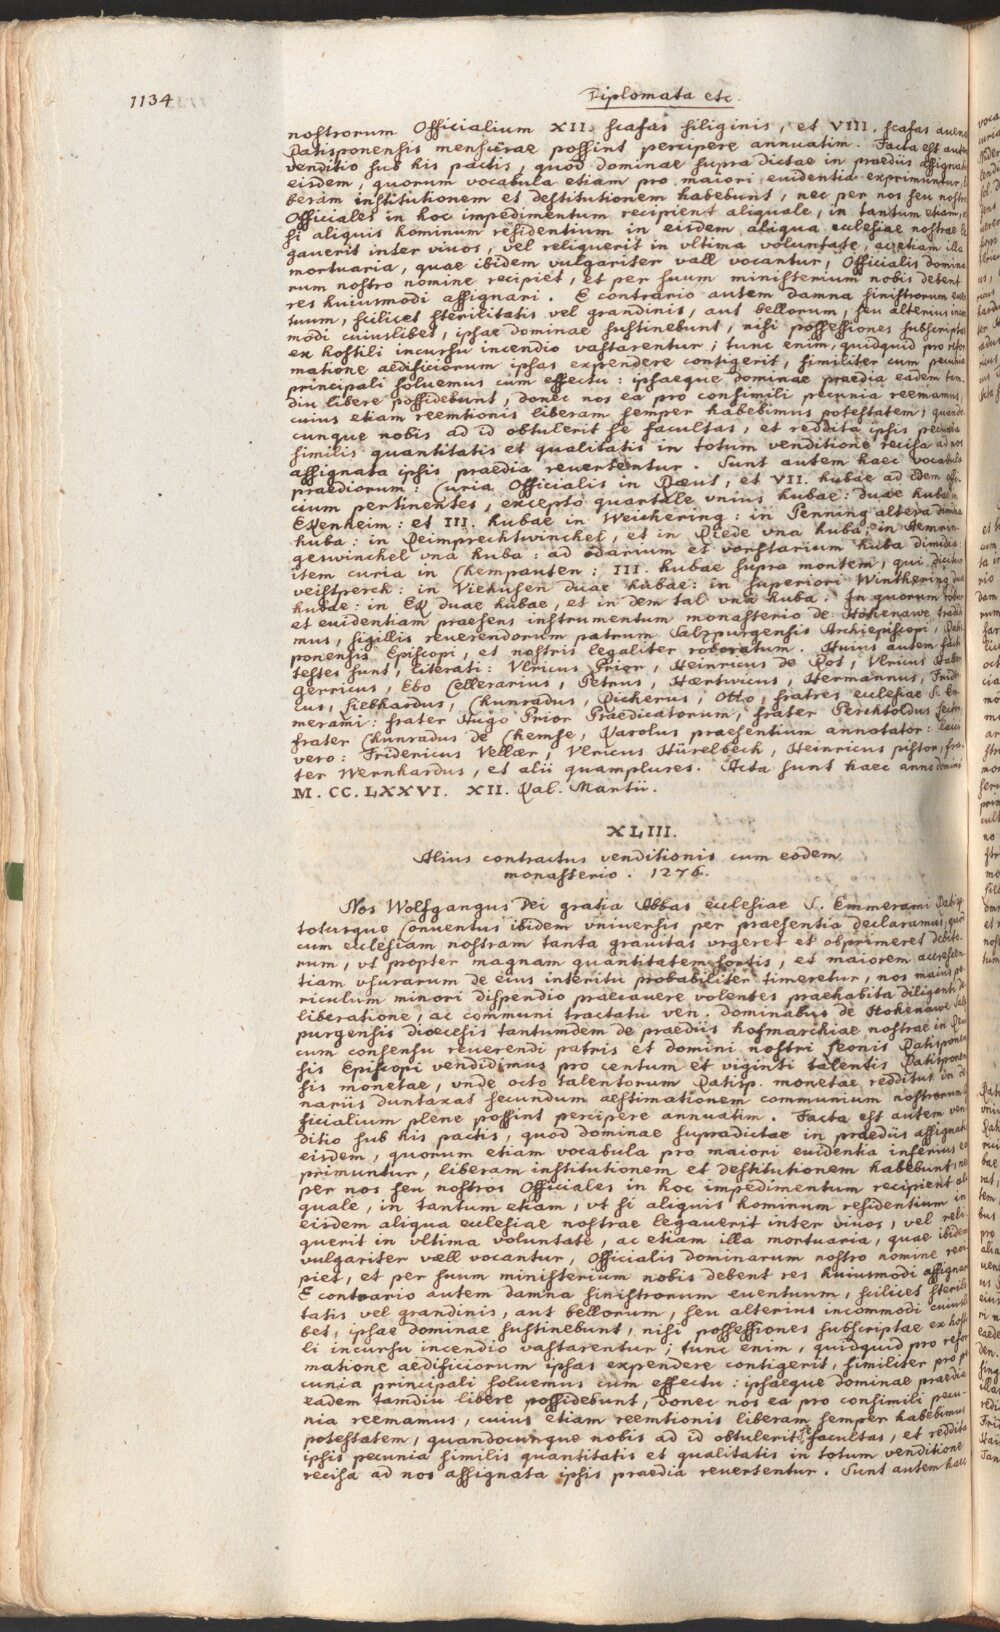 1134
Diplomata etc.
nostrorum Officialium XII. scafas siliginis, et VIII. scafas auenae
Ratisponensis mensurae possint percipere annuatim. Facta est autem
venditio sub his pactis, quod dominae supra dictae in praediis assignatis
eisdem, quorum vocabula etiam pro maiori euidentia exprimuntur, li-
beram institutionem et destitutionem habebunt, nec per nos seu nostros
Officiales in hoc impedimentum recipient aliquale, in tantum etiam, ut
si aliquis hominum residentium in eisdem aliqua ecclesiae nostrae le-
gauerit inter viuos, vel reliquerit in vltima voluntate, ac etiam illa
mortuaria, quae ibidem vulgariter vall vocantur, Officialis domina-
rum nostro nomine recipiet, et per suum ministerium nobis debent
res huiusmodi assignari. E contrario autem damna sinistrorum euen-
tuum, scilicet sterilitatis vel grandinis, aut bellorum, seu alterius incom-
modi cuiuslibet, ipsae dominae sustinebunt, nisi possessiones subscriptae
ex hostili incursu incendio vastarentur; tunc enim, quidquid pro refor-
matione aedificiorum ipsas expendere contigerit, similiter cum pecunia
principali soluemus cum effectu: ipsaeque dominae praedia eadem tam-
diu libere possidebunt, donec nos ea pro consimili pecunia reemamus,
cuius etiam reemtionis liberam semper habebimus potestatem, quando-
cunque nobis ad id obtulerit se facultas, et reddita ipsis pecunia
similis quantitatis et qualitatis in totum venditione recisa ad nos
assignata ipsis praedia reuertentur. Sunt autem haec vocabula
praediorum: Curia Officialis in Raeut, et VII. hubae ad idem offi-
cium pertinentes, excepto quartale vnius hubae: duae hubae in
Exenheim: et III. hubae in Weichering: in Penning altera dimidia
huba: in Reimprechtwinchel, et in Riede vna huba: in Hemrin-
geswinchel vna huba: ad odarium et vorstarium huba dimidia:
item curia in Chempauten: III. hubae supra montem, qui dicitur
veistperch: in Viehusen duae hubae: in superiori Winthering duae
hubae: in Ex duae hubae, et in dem tal vna huba. In quorum robur
et euidentiam praesens instrumentum monasterio de Hohenawe tradi-
mus, sigillis reuerendorum patrum Salzpurgensis Archiepiscopi, Ratis-
ponensis Episcopi, et nostris legaliter roboratum. Huius autem facti
testes sunt, literati: Vlricus Prior, Heinricus de Rot, Vlricus Haller,
Gerricus, Ebo Cellerarius, Petrus, Haertwicus, Hermannus, Frideri-
cus, Liebhardus, Chunradus, Richerus, Otto, fratres ecclesiae S. Em-
merami: frater Hugo Prior Praedicatorum, frater Perchtoldus Lector,
frater Chunradus de Chemse, Karolus praesentium annotator: laici
vero: Fridericus Vellaer, Vlricus Hürelbech, Heinricus pistor, fra-
ter Wernhardus, et alii quamplures. Acta sunt haec anno domini
M. CC. LXXVI. XII. Kal. Martii.
XLIII.
Alius contractus venditionis cum eodem
monasterio. 1276.
Nos Wolfgangus Dei gratia Abbas ecclesiae S. Emmerami Ratisp.
totusque Conuentus ibidem vniuersis per praesentia declaramus, quod
cum ecclesiam nostram tanta grauitas vrgeret et obprimeret debito-
rum, vt propter magnam quantitatem sortis, et maiorem accrescen-
tiam vsurarum de eius interitu probabiliter timeretur, nos maius pe-
riculum minori dispendio praecauere volentes praehabita diligenti de-
liberatione, ac communi tractatu ven. dominabus de Hohenawe Salz-
purgensis dioecesis tantumdem de praediis hofmarchiae nostrae in Raeut
cum consensu reuerendi patris et domini nostri Leonis Ratisponen-
sis Episcopi vendidimus pro centum et viginti talentis Ratisponen-
sis monetae, vnde octo talentorum Ratisp. monetae redditus in de-
nariis duntaxat secundum aestimationem communium nostrorum Of-
ficialium plene possint percipere annuatim. Facta est autem ven-
ditio sub his pactis, quod dominae supradictae in praediis assignatis
eisdem, quorum etiam vocabula pro maiori euidentia inferius ex-
primuntur, liberam institutionem et destitutionem habebunt, nec
per nos seu nostros Officiales in hoc impedimentum recipient ali-
quale, in tantum etiam, vt si aliquis hominum residentium in
eisdem aliqua ecclesiae nostrae legauerit inter viuos, vel reli-
querit in vltima voluntate, ac etiam illa mortuaria, quae ibidem
vulgariter vaell vocantur, Officialis dominarum nostro nomine reci-
piet, et per suum ministerium nobis debent res huiusmodi assignari.
E contrario autem damna sinistrorum euentuum, scilicet sterili-
tatis vel grandinis, aut bellorum, seu alterius incommodi cuiusli-
bet, ipsae dominae sustinebunt, nisi possessiones subscriptae ex hosti-
li incursu incendio vastarentur; tunc enim, quidquid pro refor-
matione aedificiorum ipsas expendere contigerit, similiter pro pe-
cunia principali soluemus cum effectu: ipsaeque dominae praedia
eadem tamdiu libere possidebunt, donec nos ea pro consimili pecu-
nia reemamus, cuius etiam reemtionis liberam semper habebimus
potestatem, quandocunque nobis ad id obtulerit se facultas, et reddita
ipsis pecunia similis quantitatis et qualitatis in totum venditione
recisa ad nos assignata ipsis praedia reuertentur. Sunt autem haec